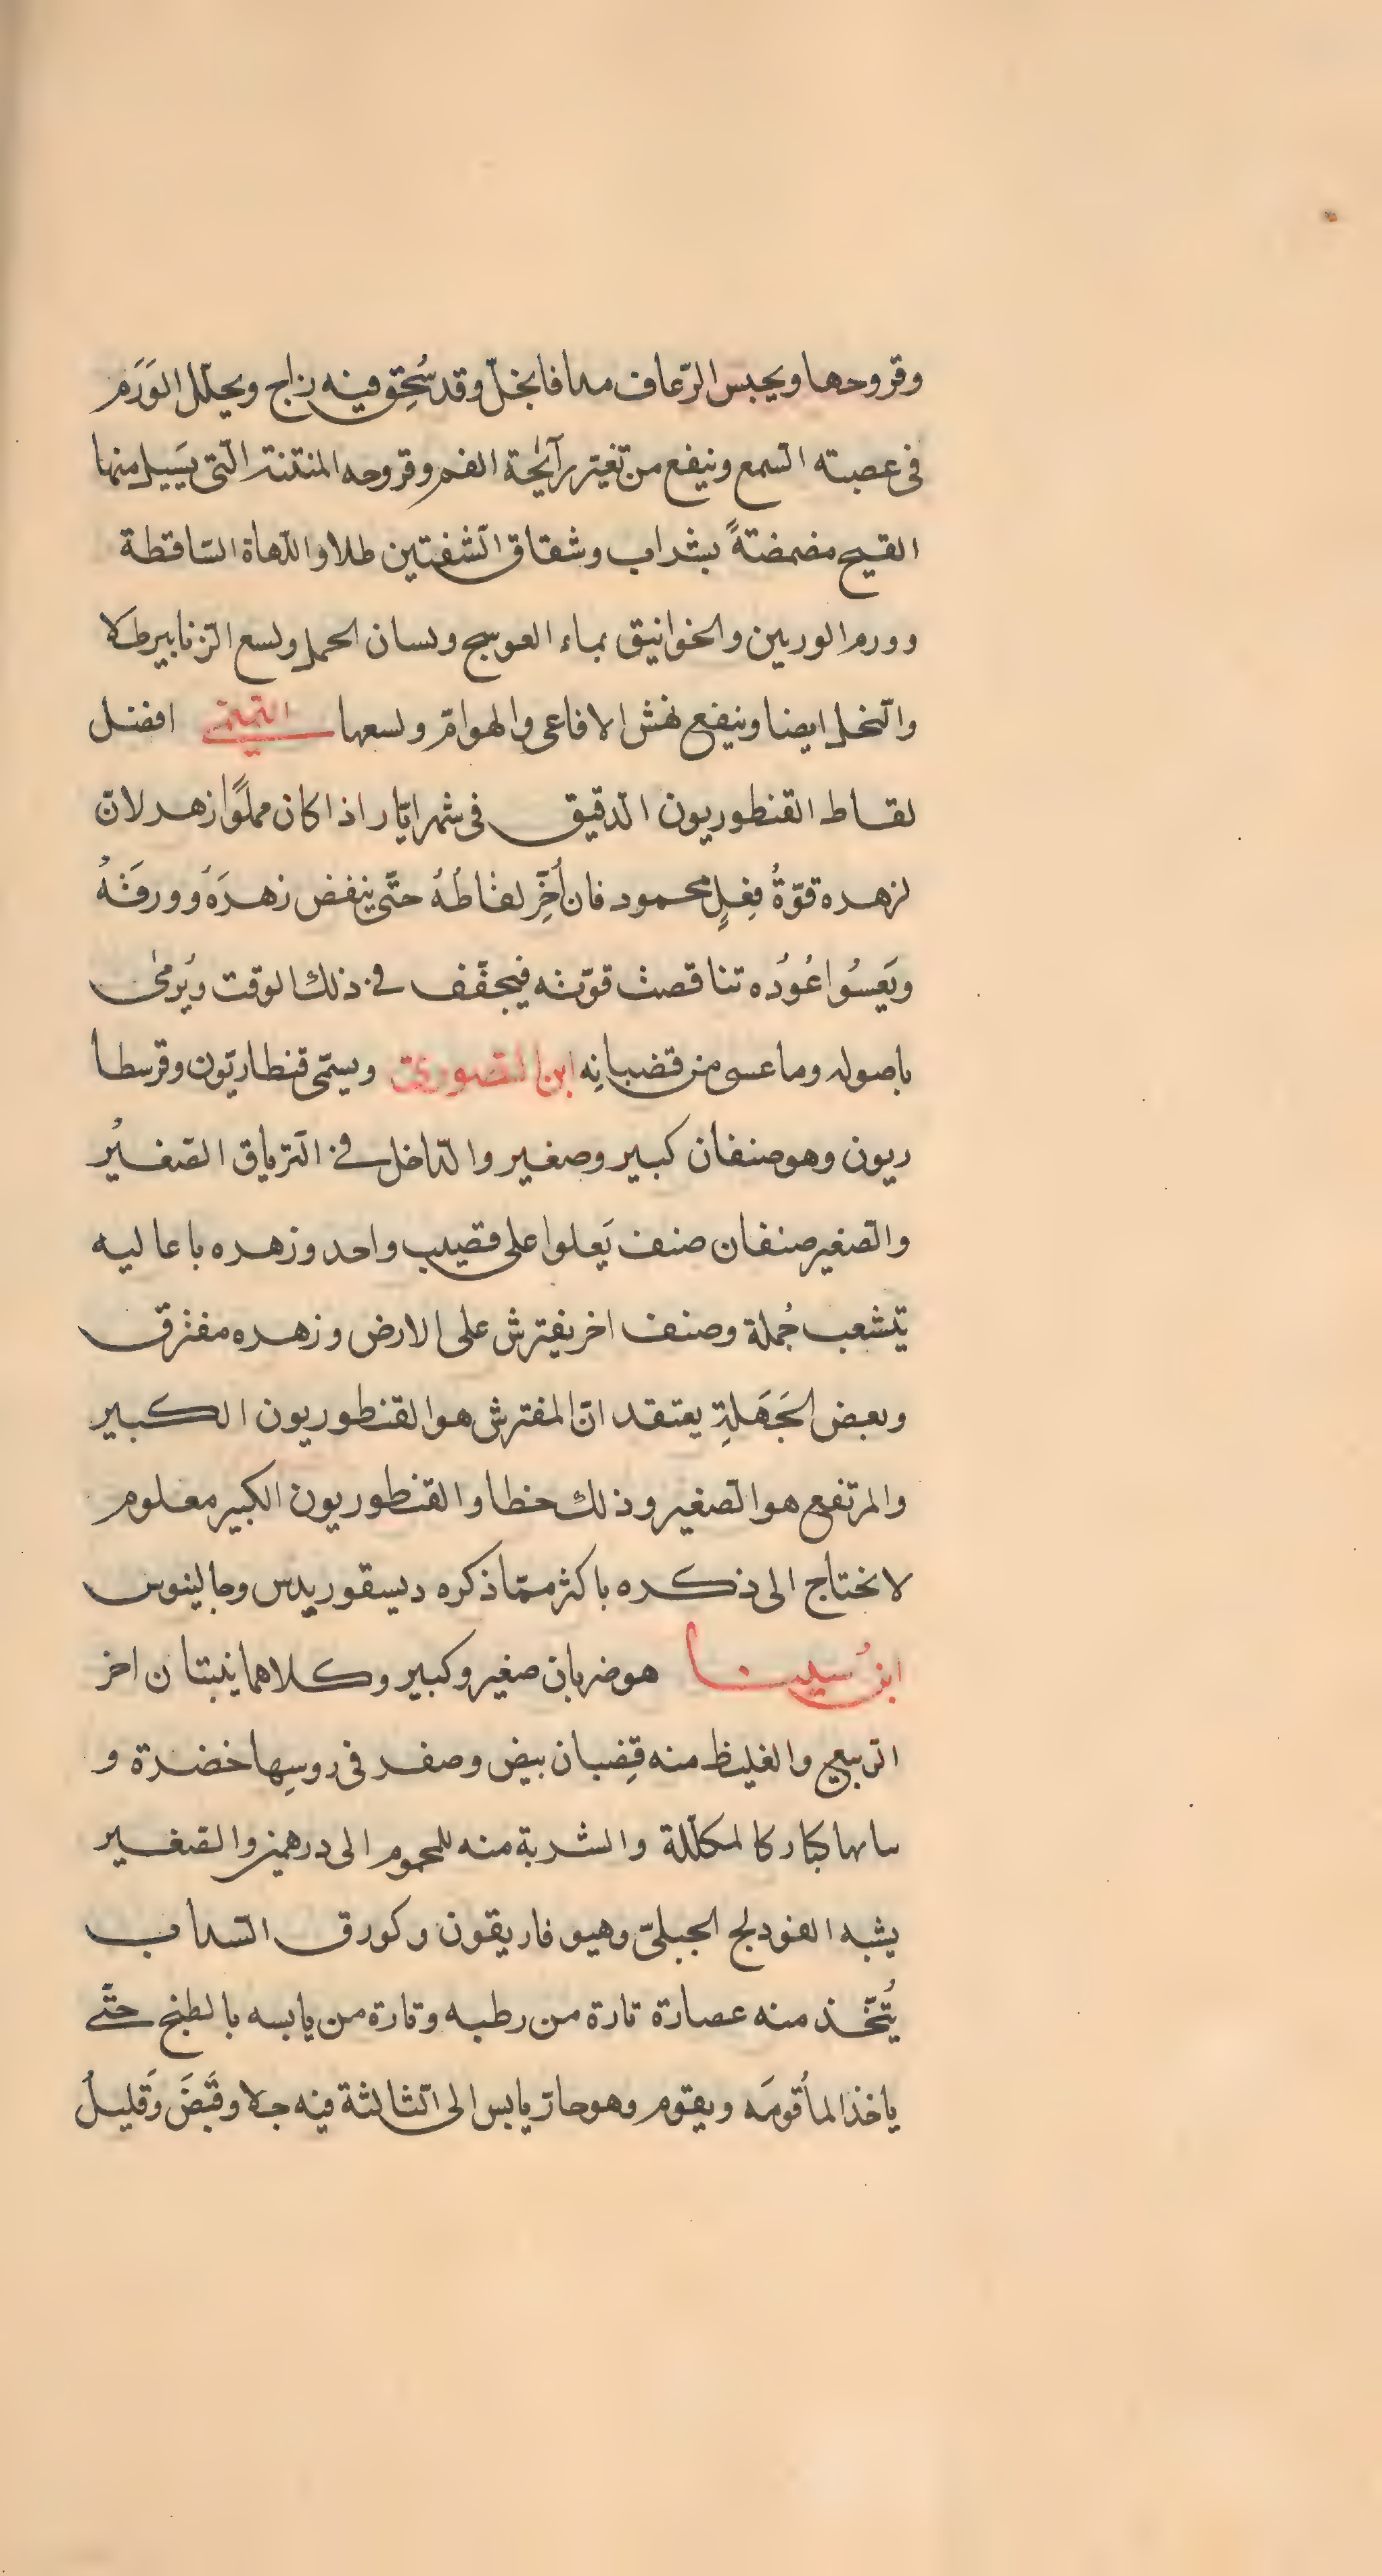 وقروحها ويحبس الرّعاف مدافا بخلّ وقد سُحِق فيه زاج ويحلّل الوَرَم
فى عصبته السّمع وينفع من تغيّر رآئحة الفم وقروحه المنتنة الّتى يَسيل منها
القيح مضمضةً بشراب وشقاق الشّفتين طلا واللّهاة السّاقطة
وورم الوريين والخوانيق بماء العوسج ولسان الحمل ولسع الزّنابير طلا
والنّخل ايضا وينفع نهش الافاعى والهوامّ ولسعها التّميمى افضل
لقاط القنطوريون الدّقيق فى شهر ايّار اذا كان مملوًّا زهر لانّ
لزهره قوّةُ فِعلٍ محمود فان أُخِّر لقاطُهُ حتّى ينفض زهرَهُ وورقَهُ
ويَعسُوا عُودُه تناقصت قوّته فيجفّف فى ذلك الوقت ويُرمىٰ
باصوله وما عسى من قضبانِه ابن الصّورىّ ويسمّى قنطاريّون وقرسطا
ريون وهو صنفان كبير وصغير والدّاخل فى التّرياق الصّغيُر
والصّغير صنفان صنف يَعلوا على قضيب واحد وزهره باعاليه
يتشعب جُملة وصنف اخر يفترش على الارض وزهره مفترق
وبعض الجَهَلةِ يعتقد انّ المفترش هو القنطوريون الكبير
والمرتفع هو الصّغير وذلك خطا والقنطوريون الكبير معلوم
لا نحتاج الى ذكره باكثر ممّا ذكره ديسقوريدس وجالينوس
ابنُ سينا هو ضربان صغير وكبير وكلاهما ينبتان اخر
الرّبيع والغليظ منه قِضبان بيض وصفر فى روسِها خضرة و
ساىها كبار كالمكلّلة والشربة منه للمحموم الى درهمين والصّغير
يشبه الفودنج الجبلىّ وهيوفاريقون وكورق السّداب
يُتّخذ منه عصارة تارة من رطبه وتارة من يابسه بالطبخ حتّى
ياخذ المأ قومَه ويقوم وهو حارّ يابس الى الثّالثة فيه جلا وقَبضَ وَقليلُ